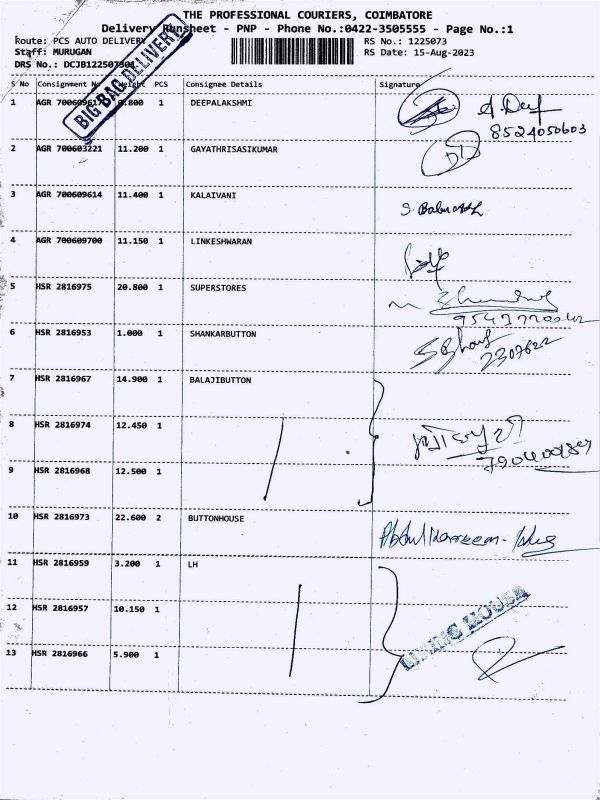 THE PROFESSIONAL COURIERS, COIMBATORE
Delivery Runsheet - PNP - Phone No.:0422-3505555 - Page No.:1
Route: PCS AUTO DELIVERY
RS No.: 1225073
Staff: MURUGAN
RS Date: 15-Aug-2023
DRS No.:
BIG BAG DELIVERY
S No Consignment No Weight PCS Consignee Details Signature
1 AGR 1 DEEPALAKSHMI
8524050603
2 AGR 700603221 11.200 1 GAYATHRISASIKUMAR
3 AGR 700609614 11.400 1 KALAIVANI
4 AGR 700609700 11.150 1 LINKESHWARAN
5 HSR 2816975 20.800 1 SUPERSTORES
6 HSR 2816953 1.000 1 SHANKARBUTTON
7 HSR 2816967 14.900 1 BALAJIBUTTON
8 HSR 2816974 12.450 1
9 HSR 2816968 12.500 1
10 HSR 2816973 22.600 2 BUTTONHOUSE
11 HSR 2816959 3.200 1 LH
12 HSR 2816957 10.150 1
13 HSR 2816966 5.900 1
HOUSE